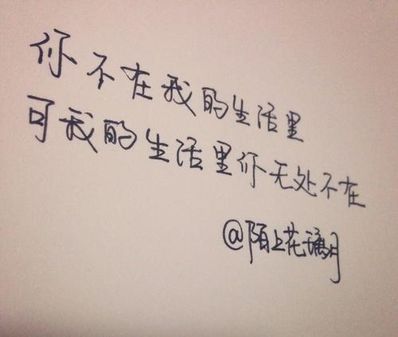 你不在我的生活里
可我的生活里你无处不在
@陌上花璃月